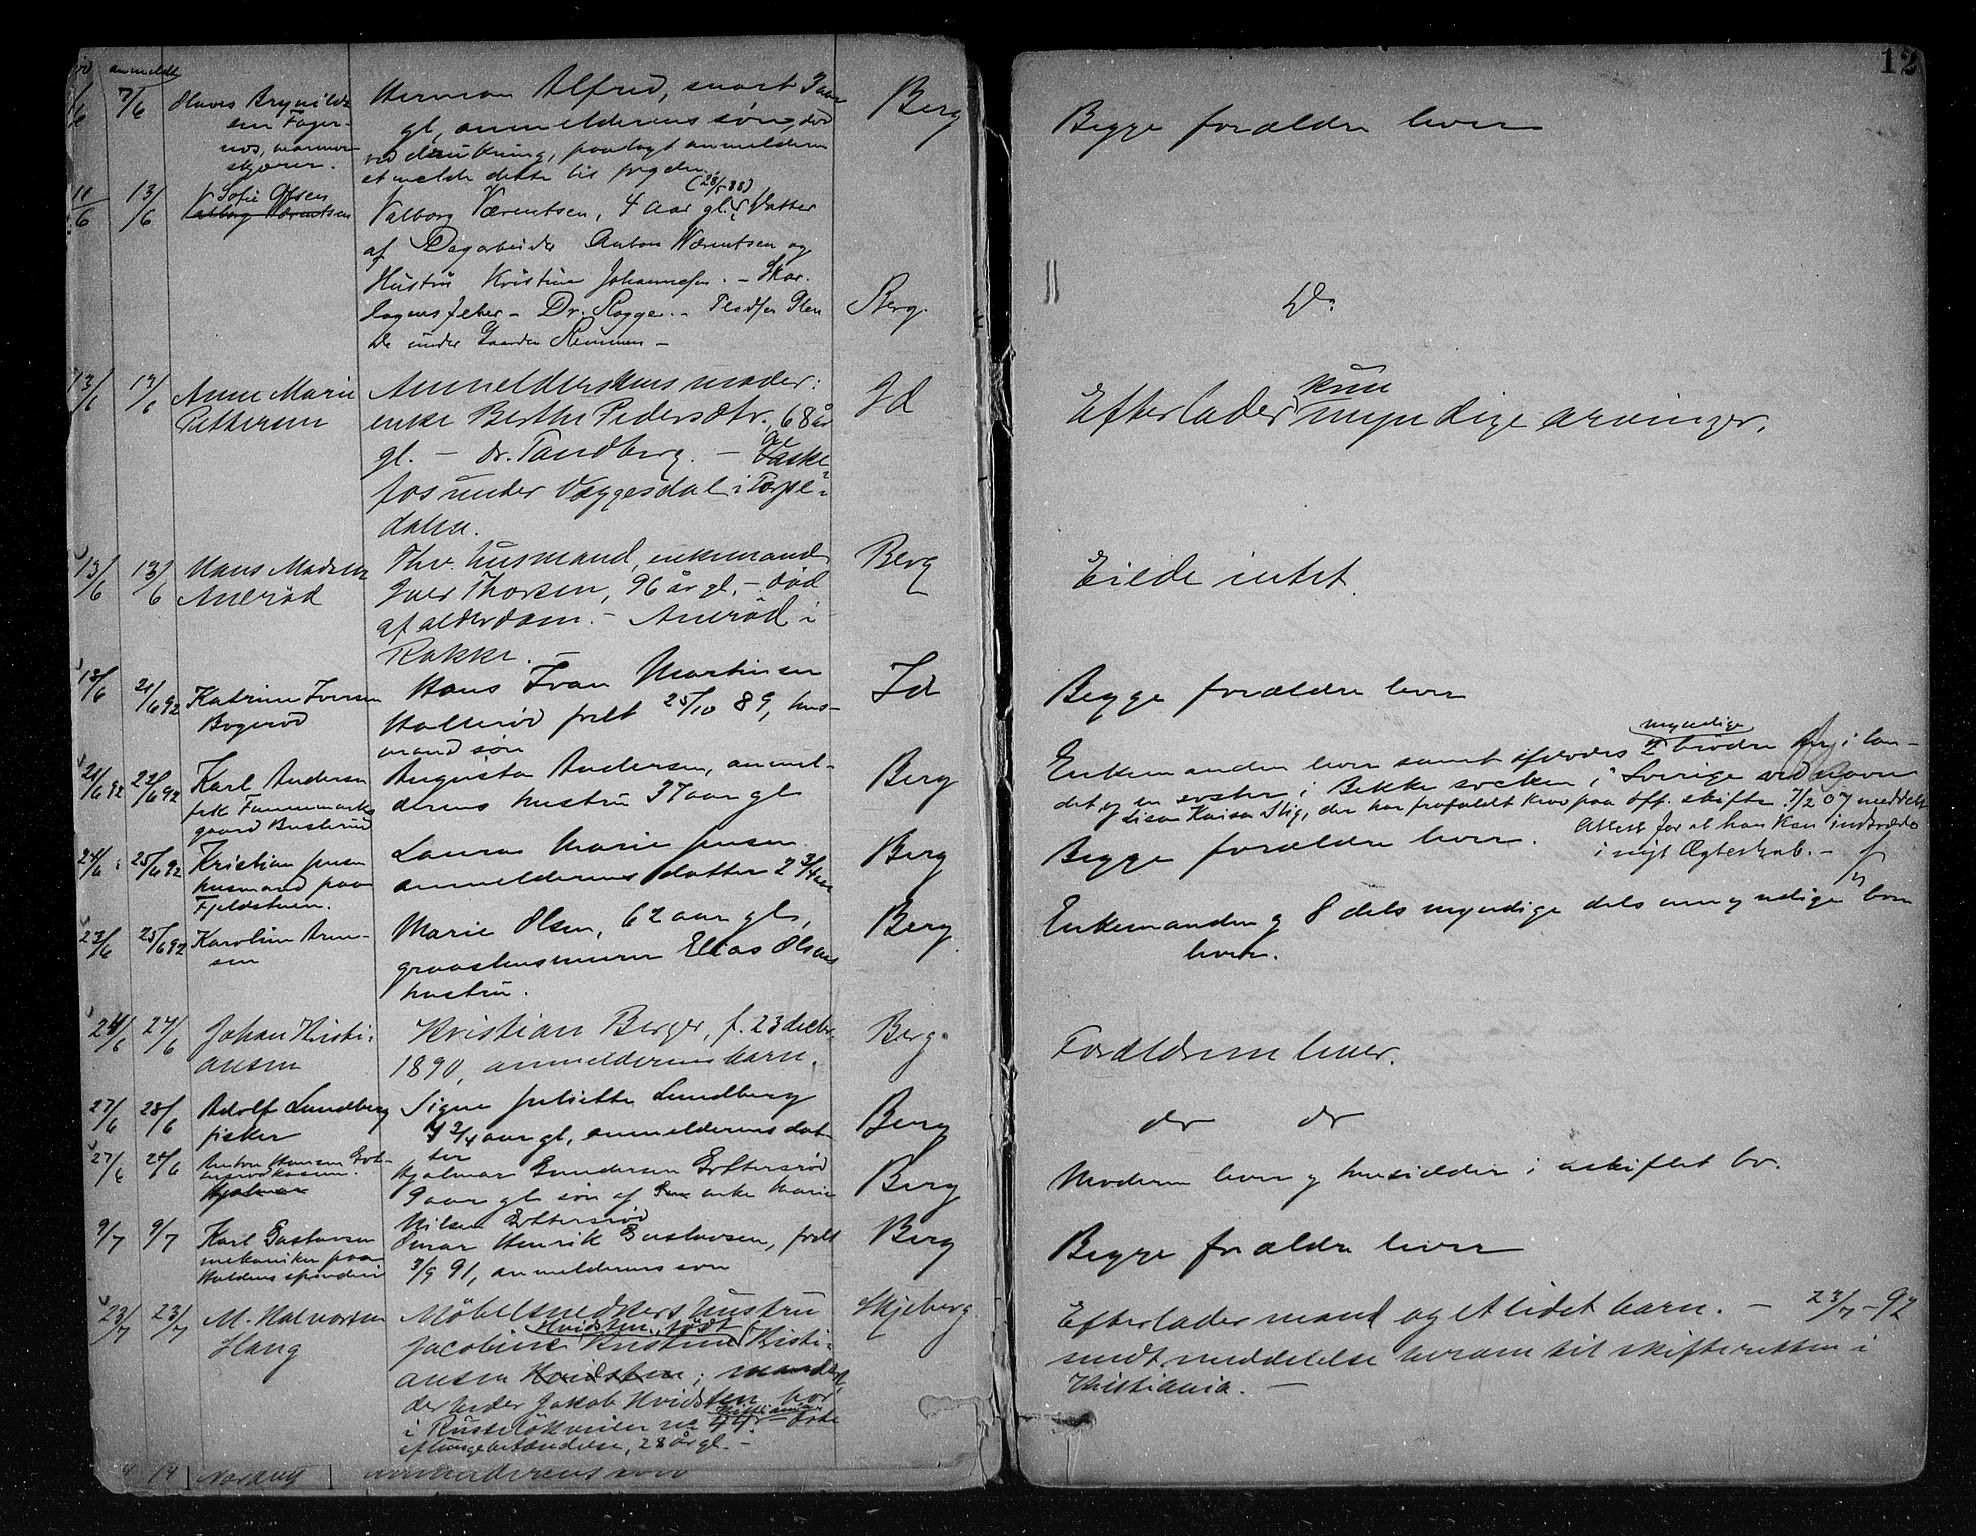 12
anmeldt
7/6
Herman Alfred, snart 3 aar
gl, anmelderens søn, død
ved drukning, paalagt anmelderen
at melde dette til
Berg
Begge forældre lever
11/6 13/6 Sofie Olsen
Valborg Værentsen
Valborg Værentsen, 4 Aar gl. Datter
af Dagarbeider Anton Værentsen og
Hustru Kristine Johannesen. - Skar-
lagensfeber - Dr. Rogge. -
under Gaarden Remmen -
Berg.
Do.
13/6 13/6 Anne Marie
Pettersen
Anmelderskens moder:
enke Berthe Pedersdtr. 68 år
gl. - dr. Tandberg. -
fos under Væggesdal i Torpe-
dalen.
Id
Efterlader kun myndige arvinger.
13/6 13/6 Hans Madsen
Anerød
Fhv. husmand, enkemand
Iver Thorsen, 96 år gl. - død
af alderdom. - Anerød i
Rokke. -
Berg
Eiede intet.
18/6 21/6 92 Katrine Iversen
Bøgerød
Hans Ivan Martinsen
Hollerød født 25/10 89, hus-
mand søn
Id
Begge forældre lever
21/6 92 22/6 92 Karl Andersen
Augusta Andersen, anmel-
derens hustru 37 aar gl
Berg
Enkemanden lever samt
myndige
2 brødre
det og en søster i Bekke socken i Sverige ved navn
Lisa Kaisa Stig, der har frafaldt krav paa off. skifte. 7/2 07 meddelt
Attest for at han kan indtræde
i nyt Ægteskab. -
24/6 25/6 92 Kristian Jensen
husmand paa
Fjeldstuen.
Laura Marie Jensen
anmelderens datter 2 3/4 aar
Berg
Begge forældre lever.
23/6 25/6 92 Karoline Aren-
sen
Marie Olsen, 62 aar gl,
graastensmurer Elias Olsens
hustru.
Berg
Enkemanden og 8 dels myndige dels umyndige børn
lever.
24/6 27/6 Johan Kristi-
ansen
Kristian Berger, f. 23 decbr.
1890, anmelderens barn.
Berg.
Forældrene lever.
27/6 28/6 Adolf Lundberg
fisker
Signe Juliette Lundberg
4 3/4 aar gl, anmelderens dat-
ter
Berg
do do
27/6 28/6 Anton Hansen
Hjalmar
Hjalmar Gundersen
9 aar gl søn af enke Marie
Nilsen
Berg
Moderen lever og hensidder i uskiftet bo.
9/7 9/7 Karl Gustavsen
mekaniker paa
Haldens spinderi
Omar Henrik Gustavsen, født
3/9 91, anmelderens søn
Berg
Begge forældre lever
23/7 23/7 M. Halvorsen
Haug
Møbelsnedkers hustru
Jacobine Kristine Hvidsten, født Kristi-
ansen Hvidsten; manden,
der heder Jakob Hvidsten bor
i Russeløkveien no 44. Kristiania
af lungebetændelse, 28 år gl. -
Skjeberg.
Efterlader mand og et lidet barn. - 23/7 - 92
sendt meddelelse herom til skifteretten i
Kristiania. -
anmelderens søn